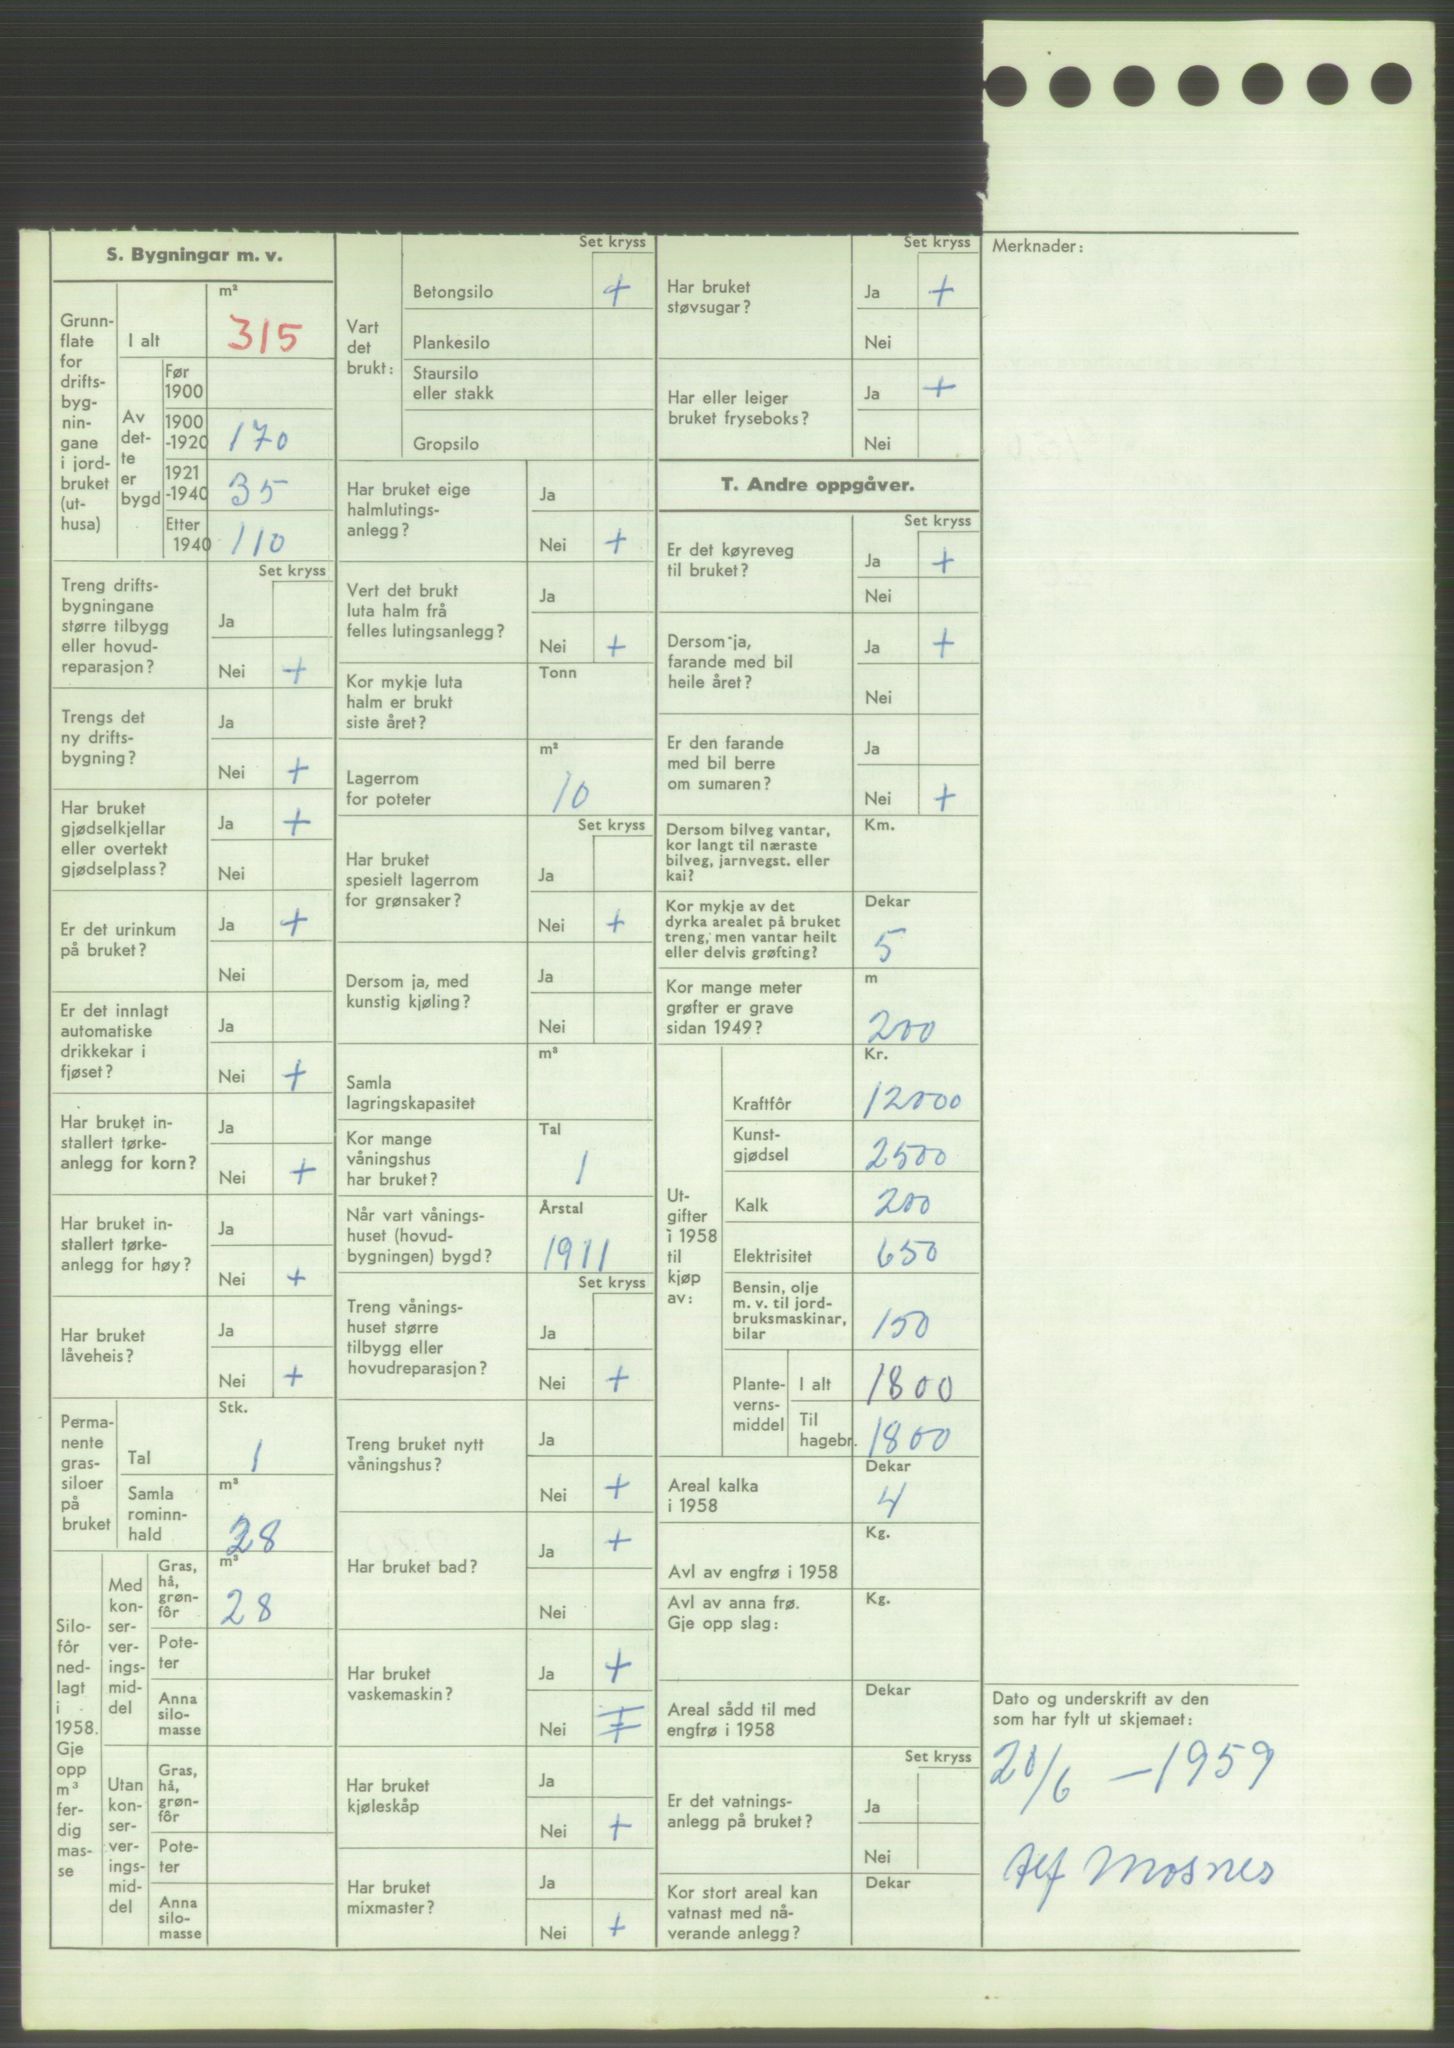 S. Bygningar m. v.
Grunn-
flate
for
drifts-
byg-
nin-
gane
i jord-
bruket
(ut-
husa)
I alt
m²
315
Av
det-
te
er
bygd
Før
1900
1900
-1920
170
1921
-1940
35
Etter
1940
110
Set kryss
Treng drifts-
bygningane
større tilbygg
eller hovud-
reparasjon?
Ja
Nei +
Trengs det
ny drifts-
bygning?
Ja
Nei +
Har bruket
gjødselkjellar
eller overtekt
gjødselplass?
Ja +
Nei
Er det urinkum
på bruket?
Ja +
Nei
Er det innlagt
automatiske
drikkekar i
fjøset?
Ja
Nei +
Har bruket in-
stallert tørke-
anlegg for korn?
Ja
Nei +
Har bruket in-
stallert tørke-
anlegg for høy?
Ja
Nei +
Har bruket
låveheis?
Ja
Nei +
Perma-
nente
gras-
siloer
på
bruket
Tal
Stk.
1
Samla
rominn-
hald
m³
28
Silo-
fôr
ned-
lagt
i
1958.
Gje
opp
m³
fer-
dig
mas-
se
Med
kon-
ser-
ver-
ings-
mid-
del
Gras,
hå,
grøn-
fôr
m³
28
Pote-
ter
Anna
silo-
masse
Utan
kon-
ser-
ver-
ings-
mid-
del
Gras,
hå,
grøn-
fôr
Pote-
ter
Anna
silo-
masse
Vart
det
brukt:
Set kryss
Betongsilo +
Plankesilo
Staursilo
eller stakk
Gropsilo
Har bruket eige
halmlutings-
anlegg?
Ja
Nei +
Vert det brukt
luta halm frå
felles lutingsanlegg?
Ja
Nei +
Kor mykje luta
halm er brukt
siste året?
Tonn
Lagerrom
for poteter
m²
10
Set kryss
Har bruket
spesielt lagerrom
for grønsaker?
Ja
Nei +
Dersom ja, med
kunstig kjøling?
Ja
Nei
Samla
lagringskapasitet
m³
Kor mange
våningshus
har bruket?
Tal
1
Når vart vånings-
huset (hovud-
bygningen) bygd?
Årstal
1911
Set kryss
Treng vånings-
huset større
tilbygg eller
hovudreparasjon?
Ja
Nei +
Treng bruket nytt
våningshus?
Ja
Nei +
Har bruket bad?
Ja +
Nei
Har bruket
vaskemaskin?
Ja +
Nei +
Har bruket
kjøleskåp
Ja
Nei +
Har bruket
mixmaster?
Ja
Nei +
Set kryss
Har bruket
støvsugar?
Ja +
Nei
Har eller leiger
bruket fryseboks?
Ja +
Nei
T. Andre oppgåver.
Set kryss
Er det køyreveg
til bruket?
Ja +
Nei
Dersom ja,
farande med bil
heile året?
Ja +
Nei
Er den farande
med bil berre
om sumaren?
Ja
Nei +
Dersom bilveg vantar,
kor langt til næraste
bilveg, jarnvegst. eller
kai?
Km.
Kor mykje av det
dyrka arealet på bruket
treng, men vantar heilt
eller delvis grøfting?
Dekar
5
Kor mange meter
grøfter er grave
sidan 1949?
m
200
Ut-
gifter
i 1958
til
kjøp
av:
Kr.
Kraftfôr 12000
Kunst-
gjødsel 2500
Kalk 200
Elektrisitet 650
Bensin, olje
m. v. til jord-
bruksmaskinar,
bilar 150
Plante-
verns-
middel
I alt 1800
Til
hagebr. 1800
Areal kalka
i 1958
Dekar
4
Avl av engfrø i 1958
Kg.
Avl av anna frø.
Gje opp slag:
Kg.
Areal sådd til med
engfrø i 1958
Dekar
Set kryss
Er det vatnings-
anlegg på bruket?
Ja
Nei
Kor stort areal kan
vatnast med nå-
verande anlegg?
Dekar
Merknader:
Dato og underskrift av den
som har fylt ut skjemaet:
20/6 - 1959
Alf Mosnes